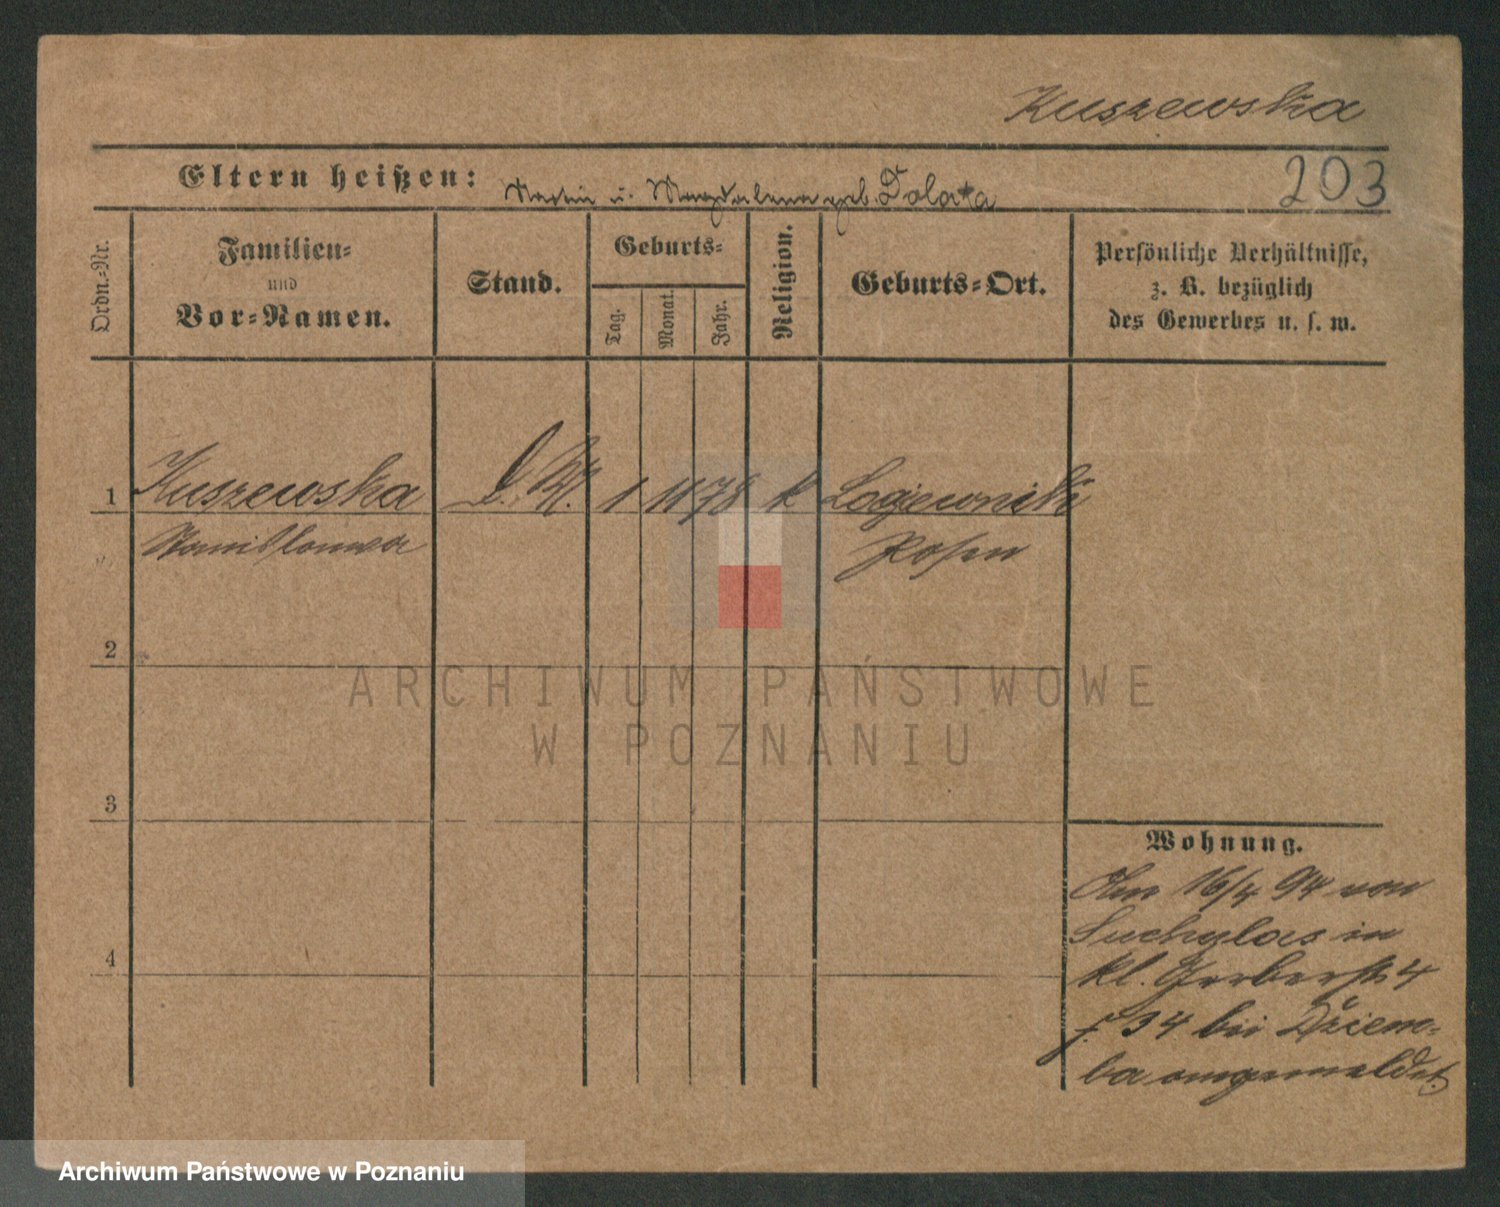 Kuszewska
Eltern heißen: Martin u. Magdalena geb. Dolata
203
Ordn.-Nr.
Familien-
und
Vor-Namen.
Stand.
Geburts-
Tag.
Monat.
Jahr.
Religion.
Geburts-Ort.
Persönliche Verhältnisse,
z. B. bezüglich
des Gewerbes u. s. w.
1 Kuszewska D. M. 1 11 78 k
Stanislawa Posen
2
3
4
Wohnung.
Am 16/4 94 von
Suchylas in
kl. Gerberstr 4
f. 34 bei Dziem-
ba angemeldet
ARCHIWUM PAŃSTWOWE
W POZNANIU
Archiwum Państwowe w Poznaniu